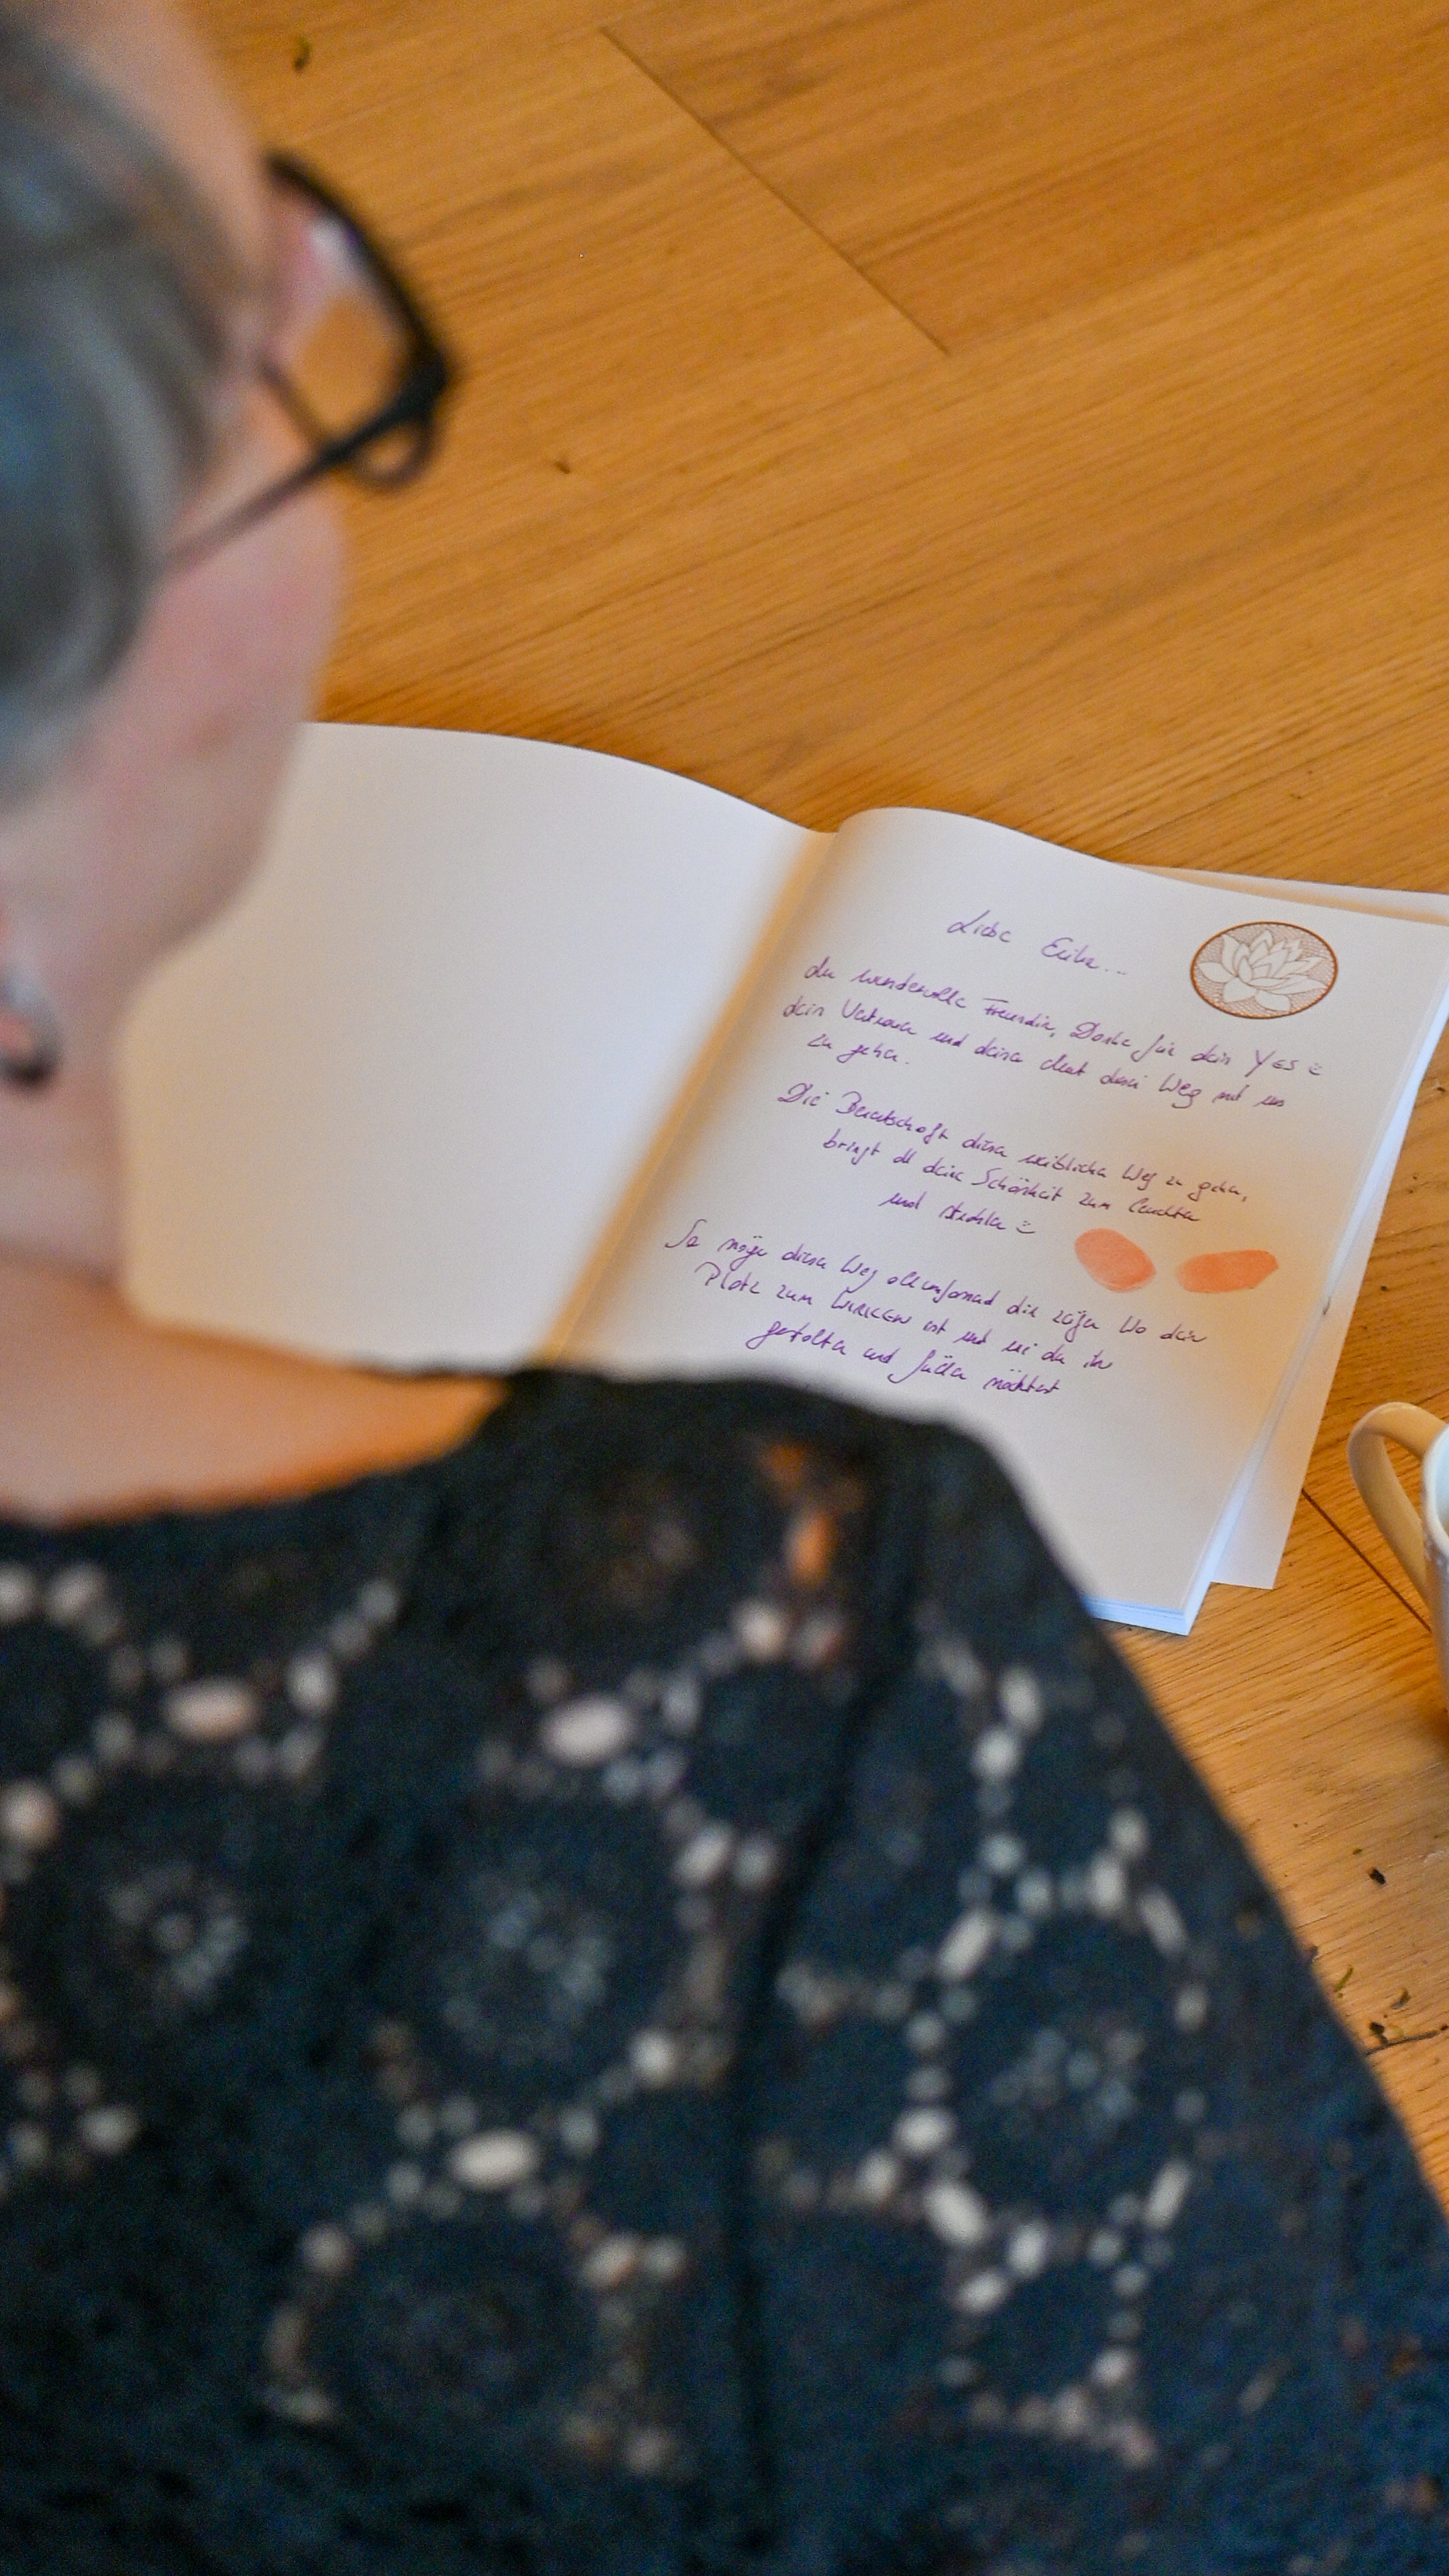 Liebe Erika...
du wundervolle Freundin, Danke für dein YES
dein Vertrauen und deinen Mut den Weg mit uns
zu gehen.
Die Bereitschaft diesen weiblichen Weg zu gehen,
bringt all deine Schönheit zum leuchten
und strahlen
So möge dieser Weg allumfassend dir zeigen wo dein
Platz zum WIRKEN ist und wie du ihn
gestalten und füllen möchtest